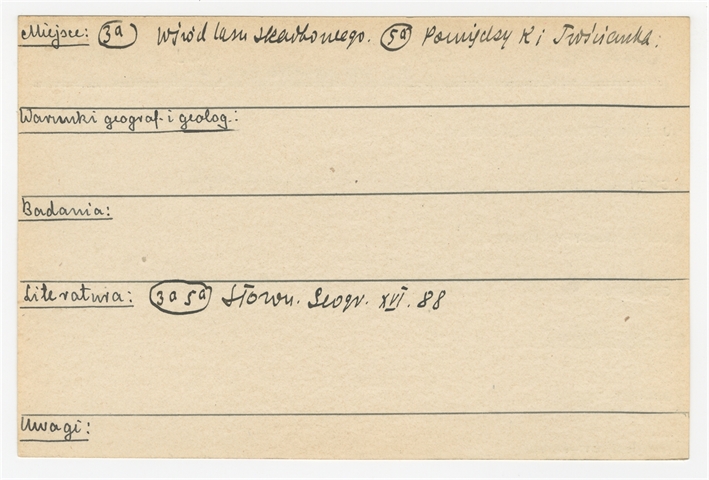 Miejsce: 3a Wśród lasu skarbowego. 5a Pomiędzy K i Trościanka.
Warunki geograf. i geolog.:
Badania:
Literatura: 3a 5a Słown. Geogr. XVI. 88
Uwagi: